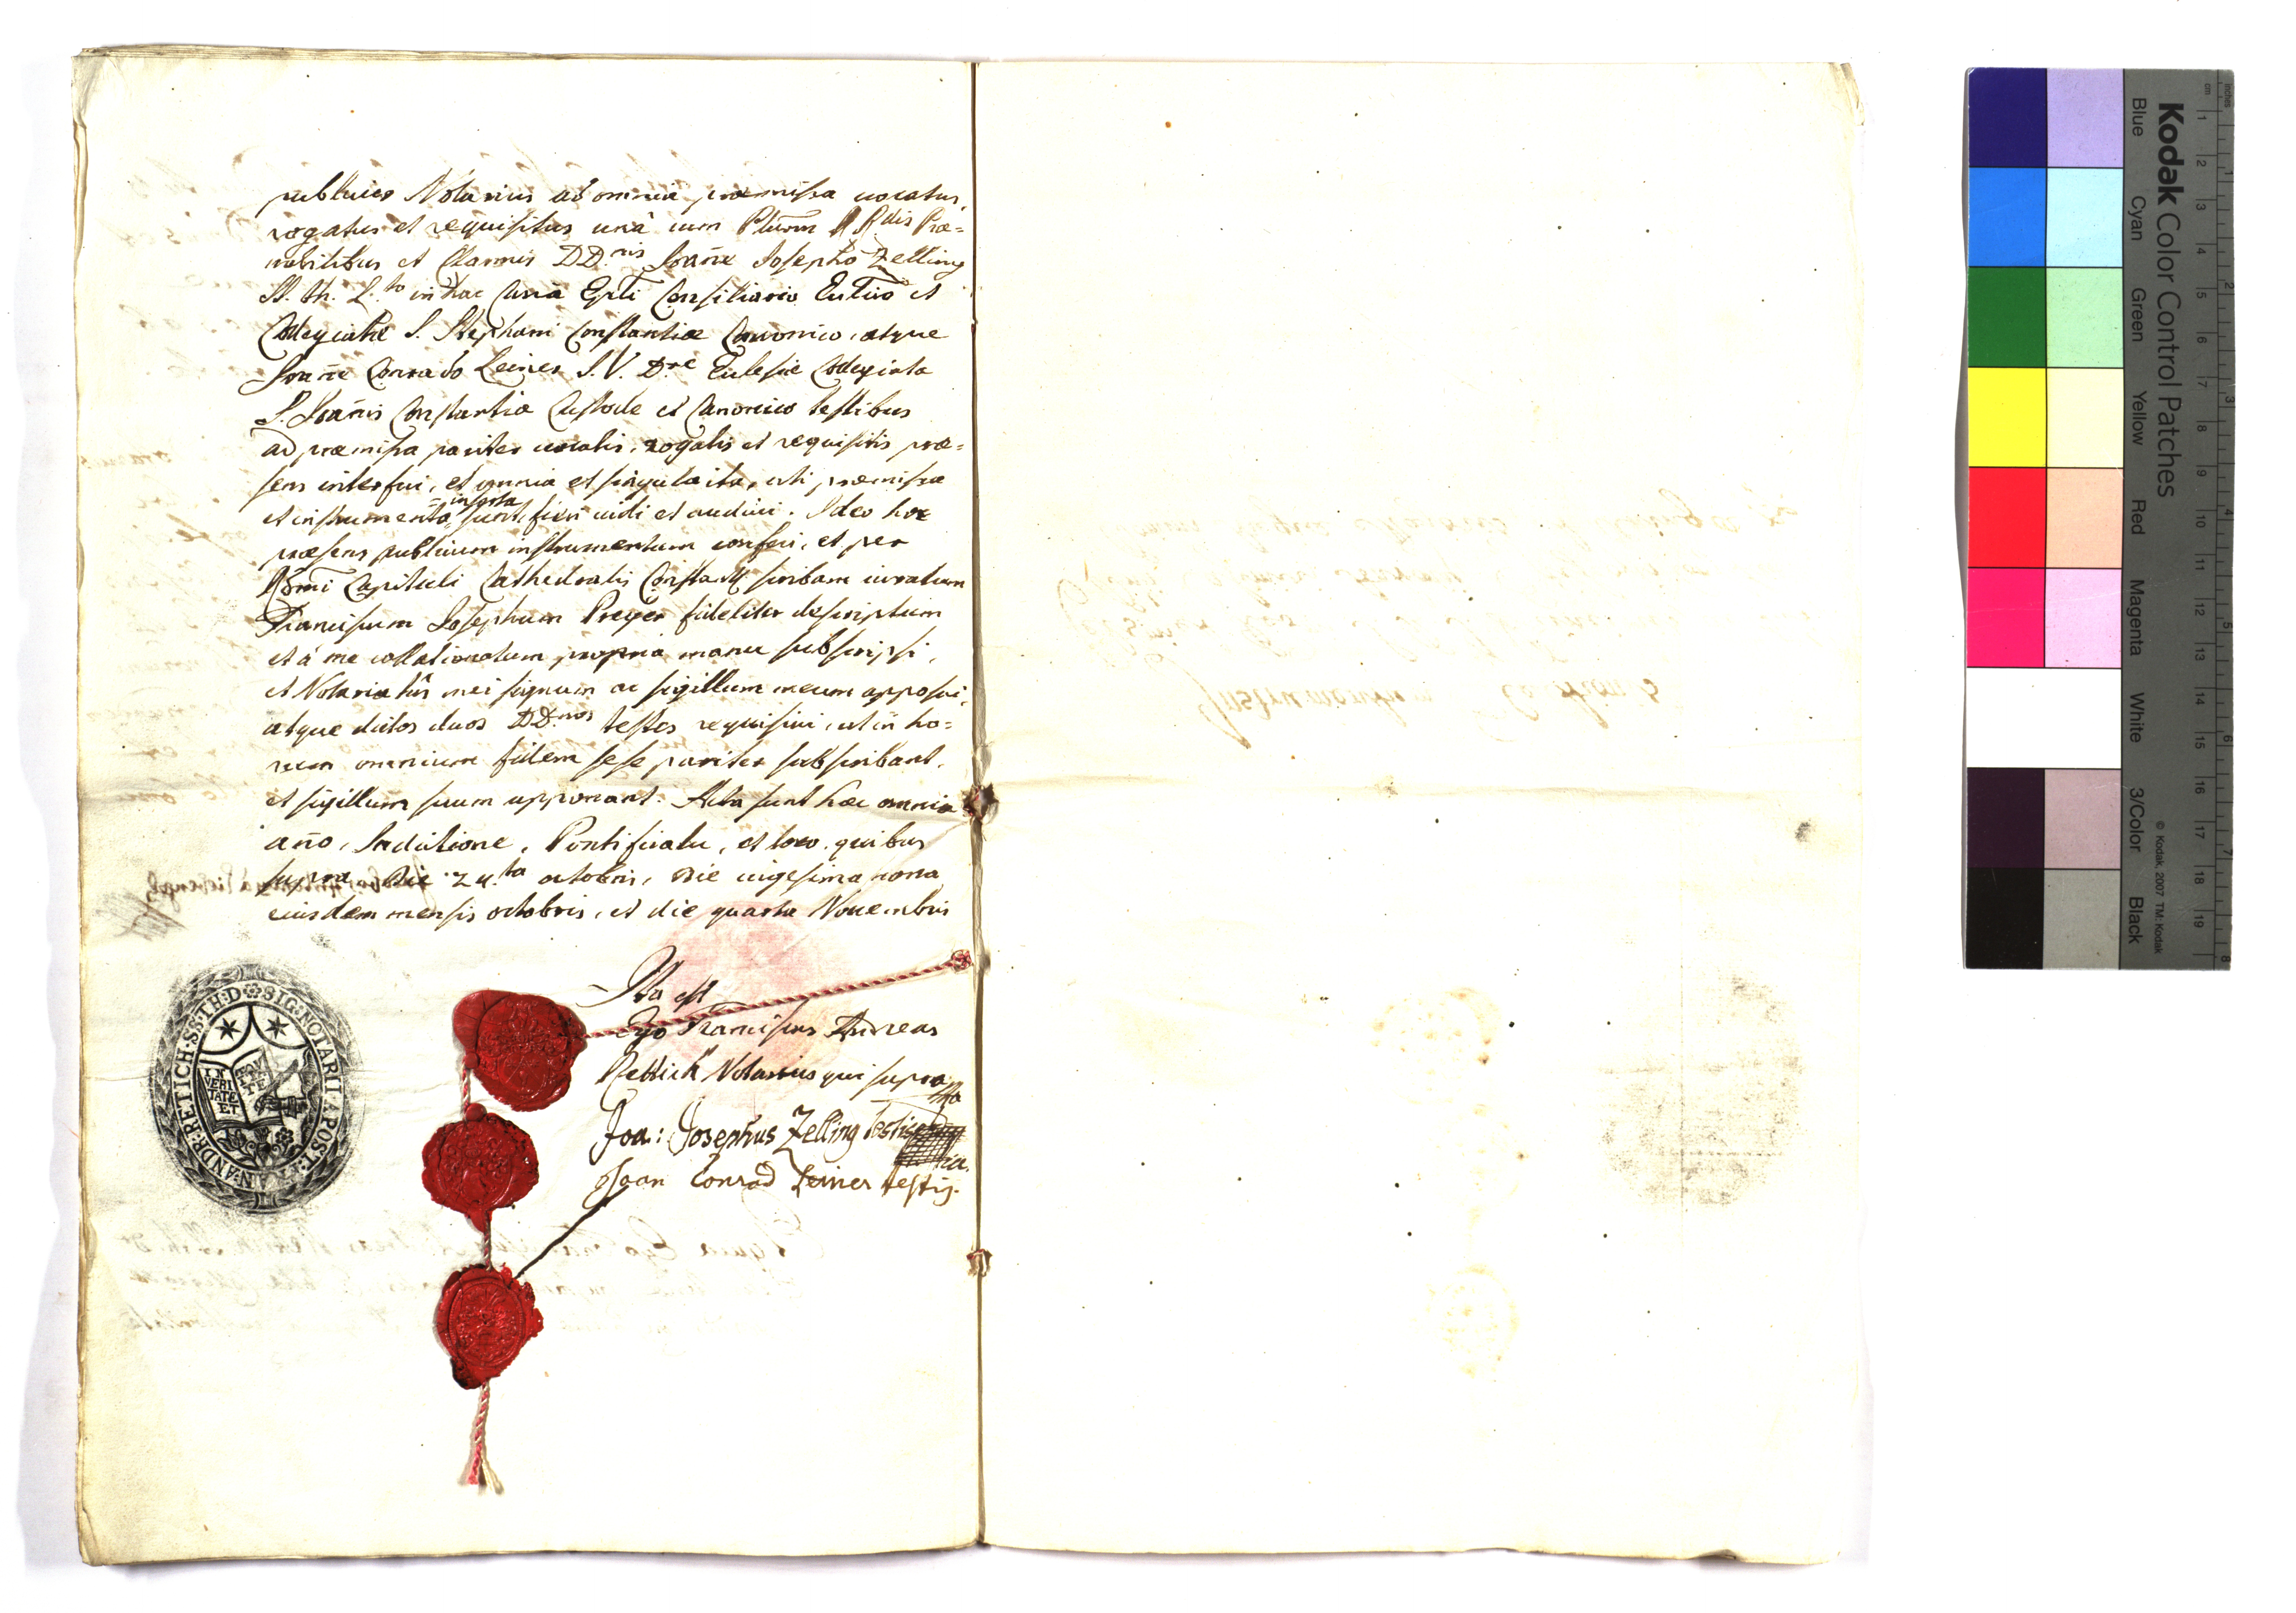 publicus Notarius ad omnia præmissa vocatus,
rogatus et requisitus unâ cum Plurm̃ RRdis Præ=
nobilibus et Clarmis DD.nis Joañe Josepho Zelling
SS. th. L.to in hac Curia Epli Consiliario Eccl͠ico et
Collegiatæ S. Stephani Constantiæ Canonico, atque
Joañe Conrado Leiner J. V. D.re Ecclesiæ Collegiatæ
S. Joañis Constantiæ Custode et Canonico testibus
ad præmissa pariter vocatis, rogatis et requisitis præ=
sens interfui, et omnia et singula ita, uti præmissa
et instrumento inserta sunt, fieri vidi et audivi. Ideo hoc
præsens publicum instrumentum confeci, et per
Rsmi Capituli Cathedralis Constant. scribam iuratum
Franciscum Josephum Preyer fideliter descriptum
et à me collationatum propriâ manu subscripsi,
et Notariatûs mei signum ac sigillum meum apposui,
atque dictos duos DD.nos testes requisivi, ut in ho=
rum omnium fidem sese pariter subscribant,
et sigillum suum apponant. Acta sunt hæc omnia
año, Indictione, Pontificatu, et loco quibus
supra die 24.ta octobris, die vigesima nona
eiusdem mensis octobris, et die quarta Novembris
Ita est
Ego Franciscus Andreas
Rettich Notarius qui supra
Joa: Josephus Zelling testis
Joan Conrad Leiner testis.
SIG. NOTARII APOST. FRAN. ANDR. RETICH. SS. TH. D
IN
VERI
TATE
ET
Instrumentum
Kodak Color Control Patches
Blue
Cyan
Green
Yellow
Red
Magenta
White
3/Color
Black
© Kodak, 2007 TM: Kodak
inches
cm
1
2
3
4
5
6
7
8
9
10
11
12
13
14
15
16
17
18
19
1
2
3
4
5
6
7
8